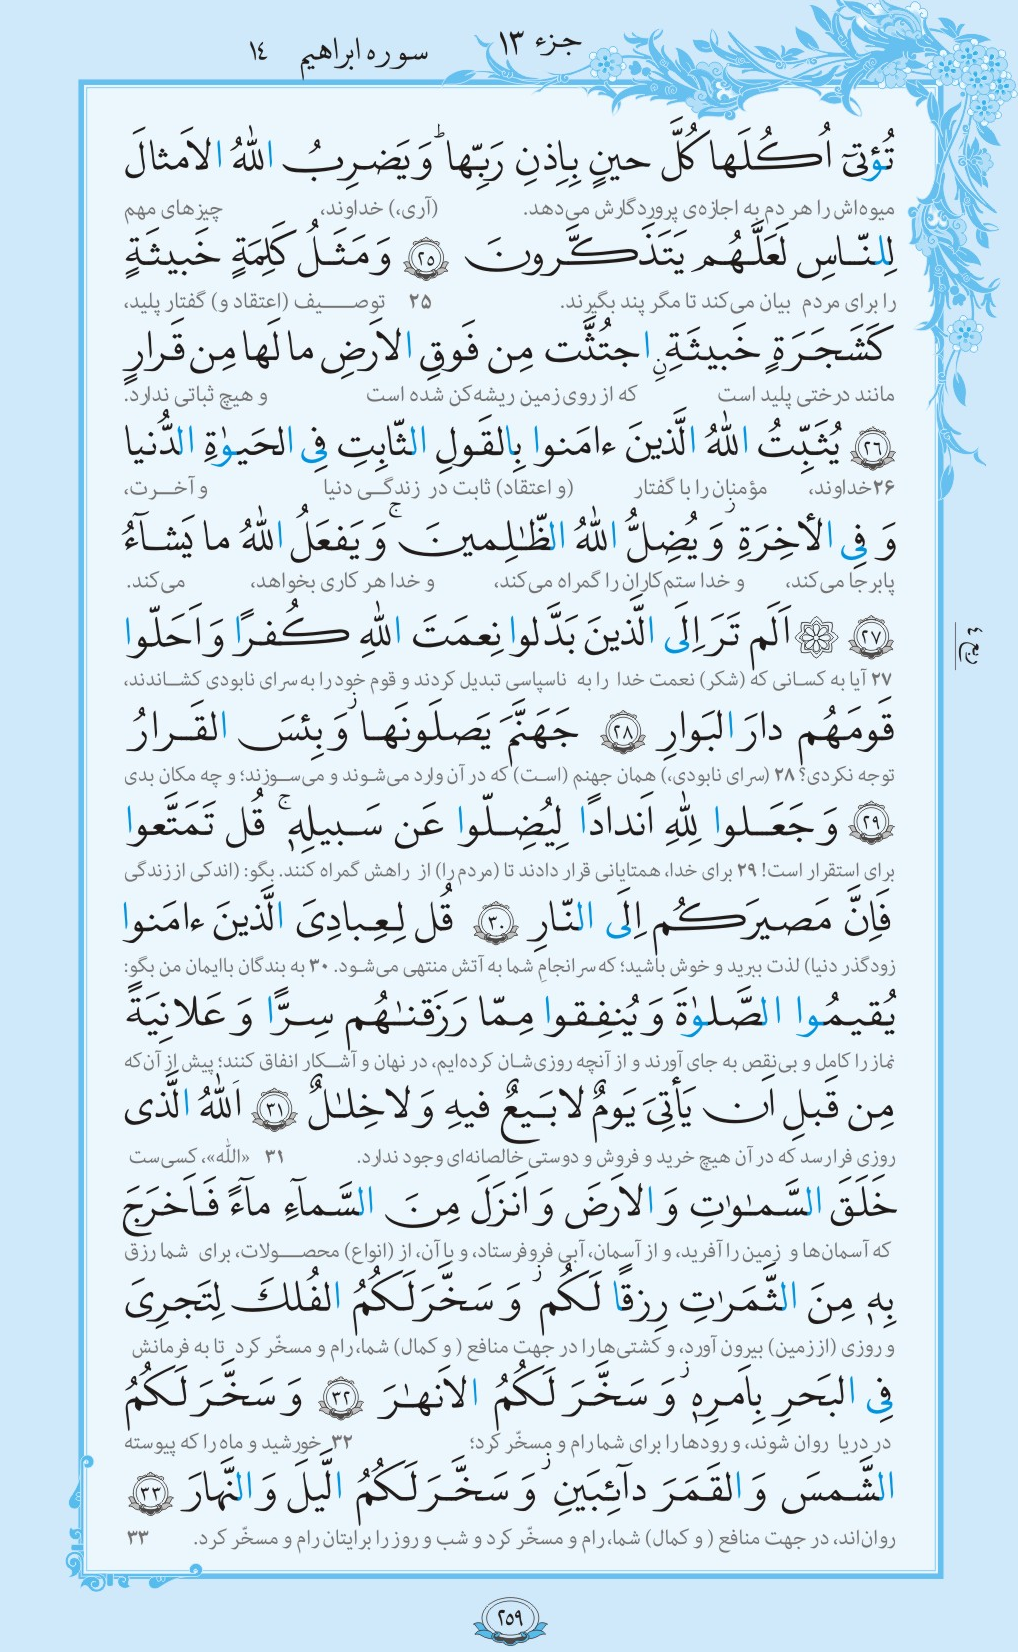 جزء ۱۳
سوره ابراهیم ١٤
تُؤتیٓ اُکُلَها کُلَّ حینٍ بِاِذنِ رَبِّها ۗ وَ یَضرِبُ اللّٰهُ الاَمثالَ
میوه‌اش را هر دم به اجازه‌ی پروردگارش می‌دهد. (آری،) خداوند، چیزهای مهم
لِلنّاسِ لَعَلَّهُم یَتَذَکَّرونَ ﴿۲۵﴾ وَ مَثَلُ کَلِمَةٍ خَبیثَةٍ
را برای مردم بیان می‌کند تا مگر پند بگیرند. ۲۵ توصیف (اعتقاد و) گفتار پلید،
کَشَجَرَةٍ خَبیثَةِنِ اجتُثَّت مِن فَوقِ الاَرضِ ما لَها مِن قَرارٍ
مانند درختی پلید است که از روی زمین ریشه‌کن شده است و هیچ ثباتی ندارد.
﴿۲۶﴾ یُثَبِّتُ اللّٰهُ الَّذینَ ءامَنوا بِالقَولِ الثّابِتِ فِی الحَیوٰةِ الدُّنیا
۲۶ خداوند، مؤمنان را با گفتار (و اعتقاد) ثابت در زندگی دنیا و آخرت،
وَ فِی الأخِرَةِ ۖ وَ یُضِلُّ اللّٰهُ الظّٰلِمینَ ۚ وَ یَفعَلُ اللّٰهُ ما یَشآءُ
پابرجا می‌کند، و خدا ستم‌کاران را گمراه می‌کند، و خدا هر کاری بخواهد، می‌کند.
﴿۲۷﴾ اَلَم تَرَ اِلَی الَّذینَ بَدَّلوا نِعمَتَ اللّٰهِ کُفرًا وَ اَحَلّوا
۲۷ آیا به کسانی که (شکر) نعمت خدا را به ناسپاسی تبدیل کردند و قوم خود را به سرای نابودی کشاندند،
ربع ٤
قَومَهُم دارَ البَوارِ ﴿۲۸﴾ جَهَنَّمَ یَصلَونَها ۖ وَ بِئسَ القَرارُ
توجه نکردی؟ ۲۸ (سرای نابودی،) همان جهنم (است) که در آن وارد می‌شوند و می‌سوزند؛ و چه مکان بدی
﴿۲۹﴾ وَ جَعَلوا لِلّٰهِ اَندادًا لِیُضِلّوا عَن سَبیلِهٖ ۚ قُل تَمَتَّعوا
برای استقرار است! ۲۹ برای خدا، همتایانی قرار دادند تا (مردم را) از راهش گمراه کنند. بگو: (اندکی از زندگی
فَاِنَّ مَصیرَکُم اِلَی النّارِ ﴿۳۰﴾ قُل لِعِبادِیَ الَّذینَ ءامَنوا
زودگذر دنیا) لذت ببرید و خوش باشید؛ که سرانجام شما به آتش منتهی می‌شود. ۳۰ به بندگان باایمان من بگو:
یُقیمُوا الصَّلوٰةَ وَ یُنفِقوا مِمّا رَزَقنٰهُم سِرًّا وَ عَلانِیَةً
نماز را کامل و بی‌نقص به جای آورند و از آنچه روزی‌شان کرده‌ایم، در نهان و آشکار انفاق کنند؛ پیش از آن‌که
مِن قَبلِ اَن یَأتِیَ یَومٌ لا بَیعٌ فیهِ وَ لا خِلٰلٌ ﴿۳۱﴾ اَللّٰهُ الَّذی
روزی فرارسد که در آن هیچ خرید و فروش و دوستی خالصانه‌ای وجود ندارد. ۳۱ «اللّٰه»، کسی‌ست
خَلَقَ السَّمٰوٰتِ وَ الاَرضَ وَ اَنزَلَ مِنَ السَّمآءِ مآءً فَاَخرَجَ
که آسمان‌ها و زمین را آفرید، و از آسمان، آبی فروفرستاد، و با آن، از (انواع) محصولات، برای شما رزق
بِهٖ مِنَ الثَّمَرٰتِ رِزقًا لَکُم ۖ وَ سَخَّرَ لَکُمُ الفُلكَ لِتَجرِیَ
و روزی (از زمین) بیرون آورد، و کشتی‌ها را در جهت منافع (و کمال) شما، رام و مسخّر کرد تا به فرمانش
فِی البَحرِ بِاَمرِهٖ ۖ وَ سَخَّرَ لَکُمُ الاَنهٰرَ ﴿۳۲﴾ وَ سَخَّرَ لَکُمُ
در دریا روان شوند، و رودها را برای شما رام و مسخّر کرد؛ ۳۲ خورشید و ماه را که پیوسته
الشَّمسَ وَ القَمَرَ دآئِبَینِ ۖ وَ سَخَّرَ لَکُمُ الَّیلَ وَ النَّهارَ ﴿۳۳﴾
روان‌اند، در جهت منافع (و کمال) شما، رام و مسخّر کرد و شب و روز را برایتان رام و مسخّر کرد. ۳۳
۲۵۹